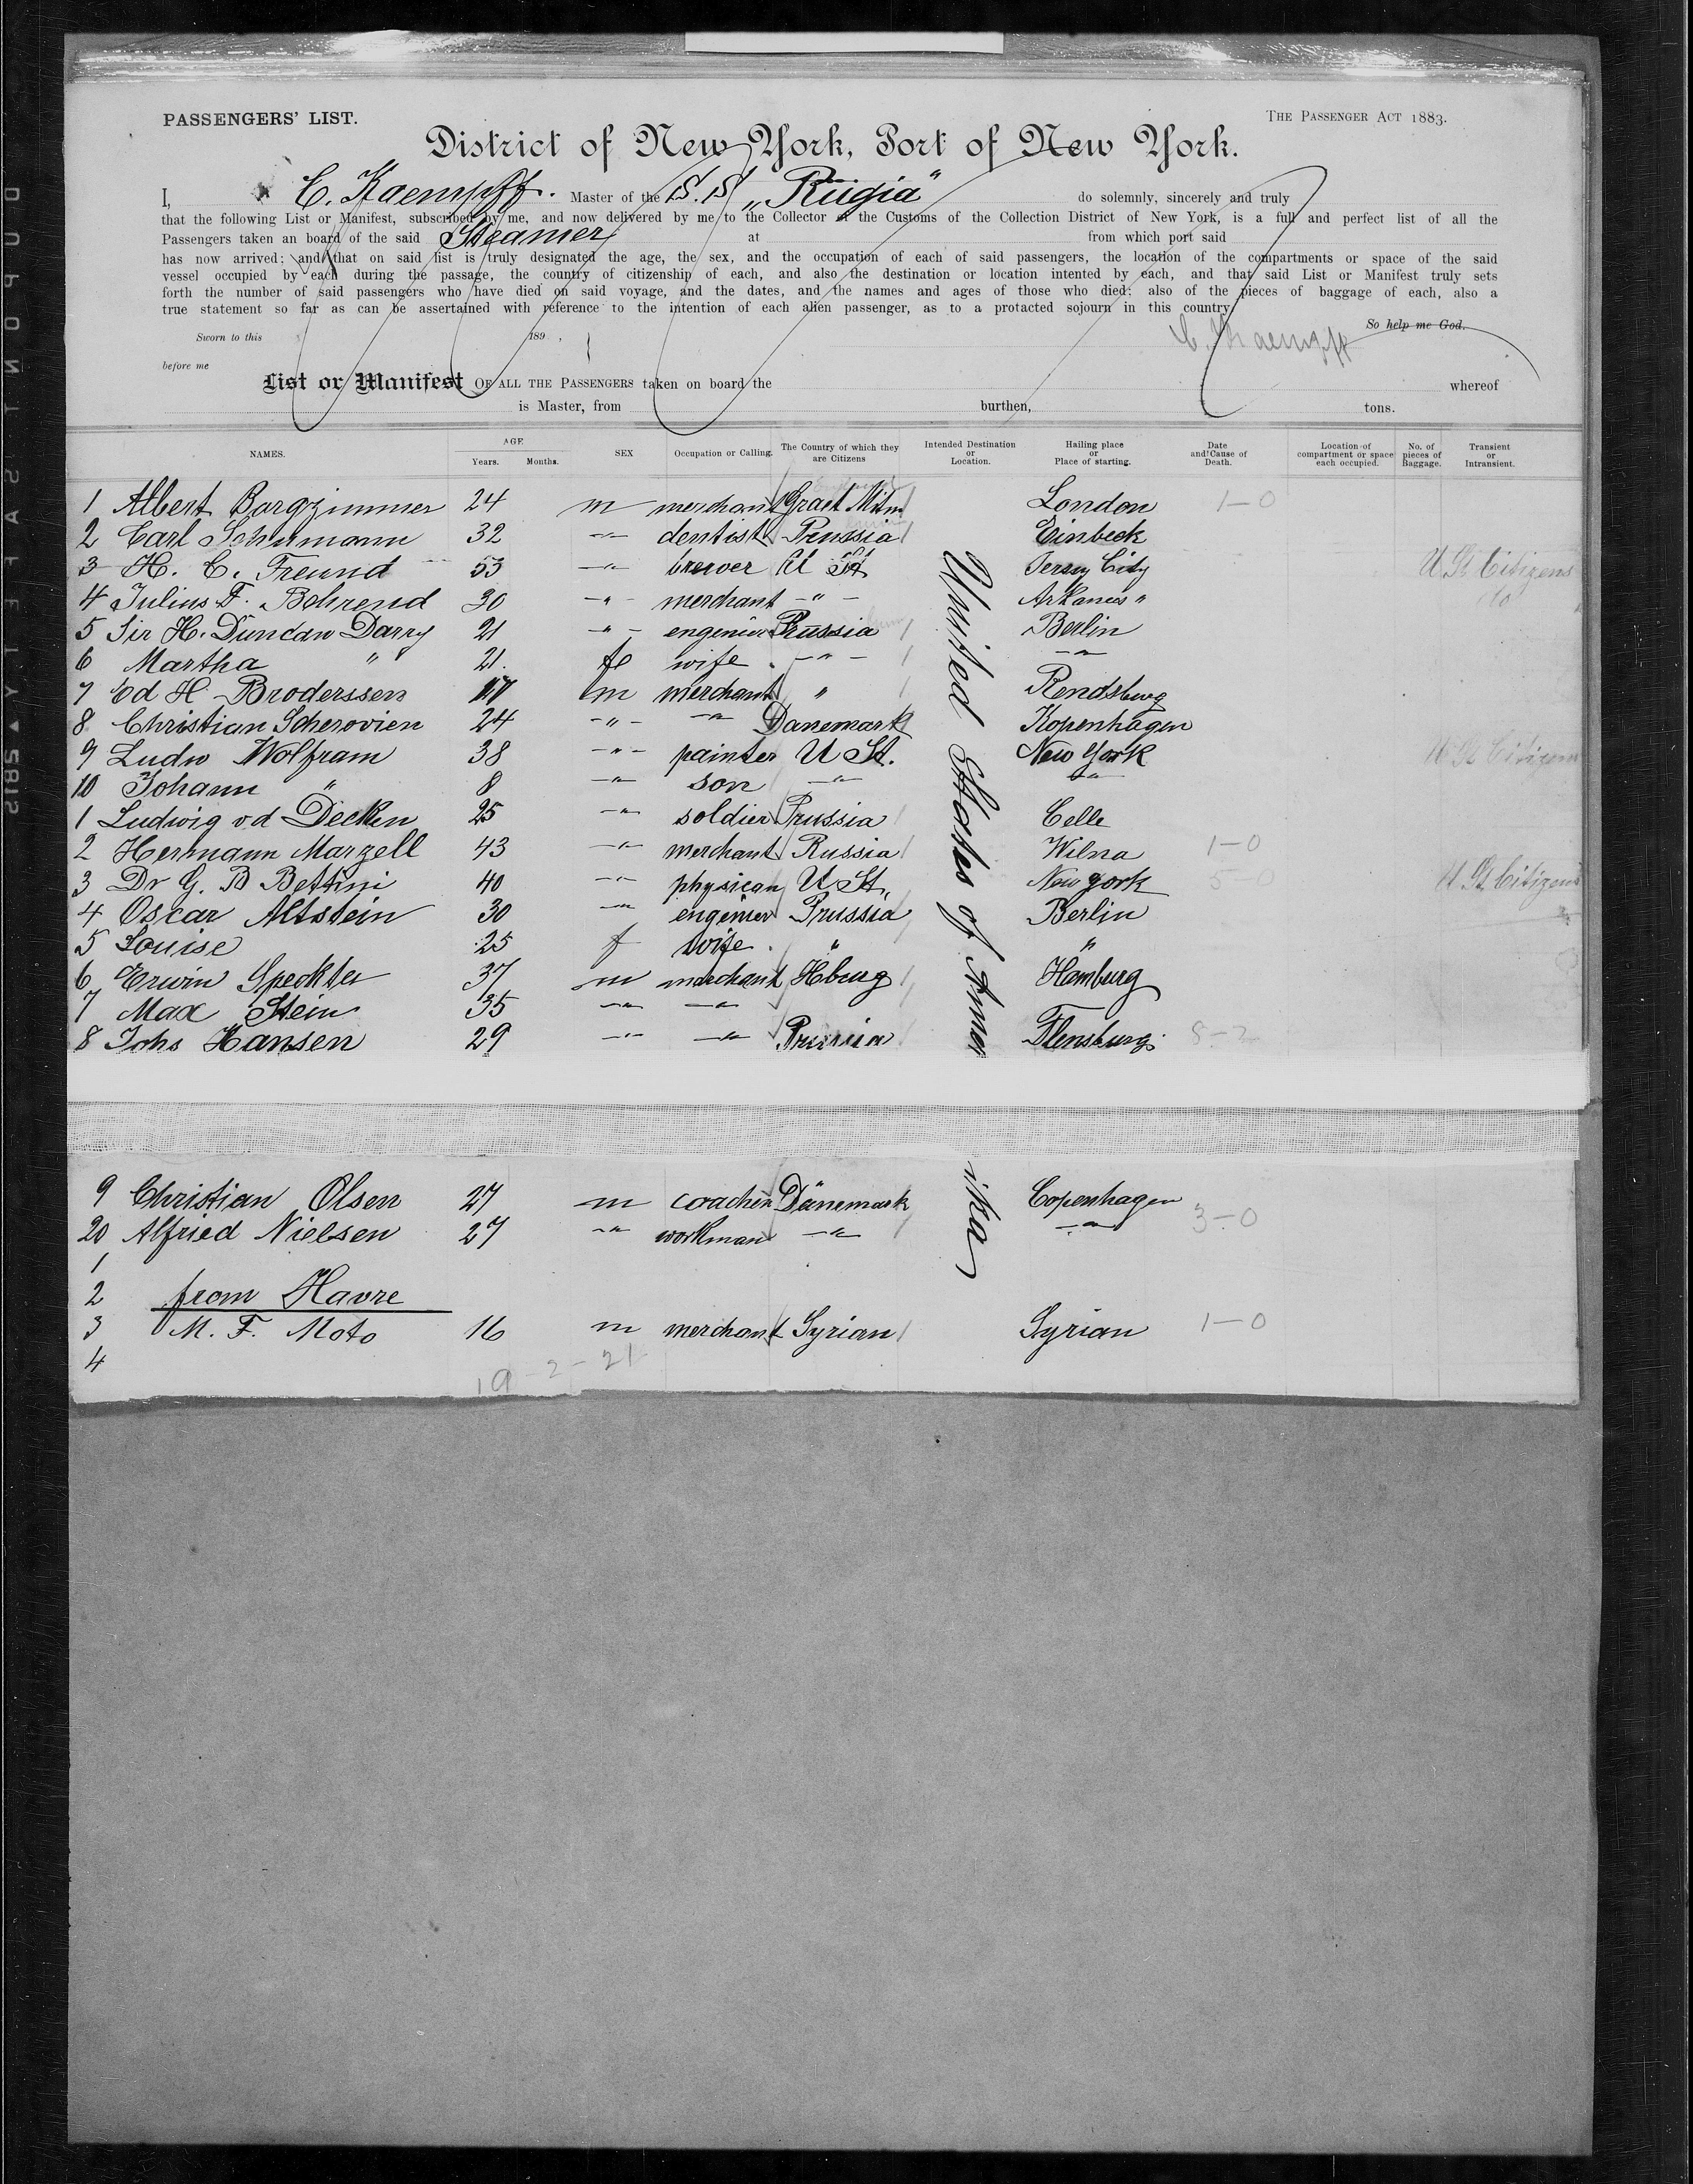 PASSENGERS' LIST.
THE PASSENGER ACT 1883.
District of New York, Port of New York.
I, C. Kaempff. Master of the S.S. „Rügia" do solemnly, sincerely and truly
that the following List or Manifest, subscribed by me, and now delivered by me to the Collector of the Customs of the Collection District of New York, is a full and perfect list of all the
Passengers taken an board of the said Steamer at from which port said
has now arrived; and that on said list is truly designated the age, the sex, and the occupation of each of said passengers, the location of the compartments or space of the said
vessel occupied by each during the passage, the country of citizenship of each, and also the destination or location intented by each, and that said List or Manifest truly sets
forth the number of said passengers who have died on said voyage, and the dates, and the names and ages of those who died; also of the pieces of baggage of each, also a
true statement so far as can be assertained with reference to the intention of each alien passenger, as to a protacted sojourn in this country
So help me God.
Sworn to this 189 ,
C. Kaempff
before me
List or Manifest OF ALL THE PASSENGERS taken on board the whereof
is Master, from burthen, tons.
NAMES. AGE Years. Months. SEX Occupation or Calling. The Country of which they are Citizens Intended Destination or Location. Hailing place or Place of starting. Date and Cause of Death. Location of compartment or space each occupied. No. of pieces of Baggage. Transient or Intransient.
1 Albert Borgzimmer 24 m merchant London 1-0
2 Carl Schumann 32 -"- dentist Prussia Einbeck
3 H. C. Freund 53 -"- brewer U St. Jersey City U. St. Citizens
4 Julius F. Behrend 30 -"- merchant -"- Arkansas " do
5 Sir H. Duncan Darry 21 -"- engenier Prussia Berlin
6 Martha " 21. fe wife -"- -"-
7 Ed H. Broderssen 17 m merchant " Rendsburg
8 Christian Scherovien 24 -"- -"- Danemark Kopenhagen
9 Ludw Wolfram 38 -"- painter U St. New York U. St. Citizens
10 Johann " 8 -"- son -"- -"-
1 Ludwig v d Decken 25 -"- soldier Prussia Celle
2 Hermann Marzell 43 -"- merchant Russia Wilna 1-0
3 Dr G. B Bettini 40 -"- physican U St. New york 5-0 U. St. Citizens
4 Oscar Altstein 30 -"- engenier Prussia Berlin
5 Louise 25 f wife " "
6 Erwin Speckter 37 m merchant Hburg Hamburg
7 Max Stein 35 -"- -"-
8 Johs Hansen 29 -"- -"- Prussia Flensburg.
United States of Amerika
9 Christian Olsen 27 m coachm Dänemark Copenhagen
20 Alfried Nielsen 27 -"- workman -"- -"- 3-0
1
2 from Havre
3 M. F. Moto 16 m merchant Syrian Syrian 1-0
4
19-2-21